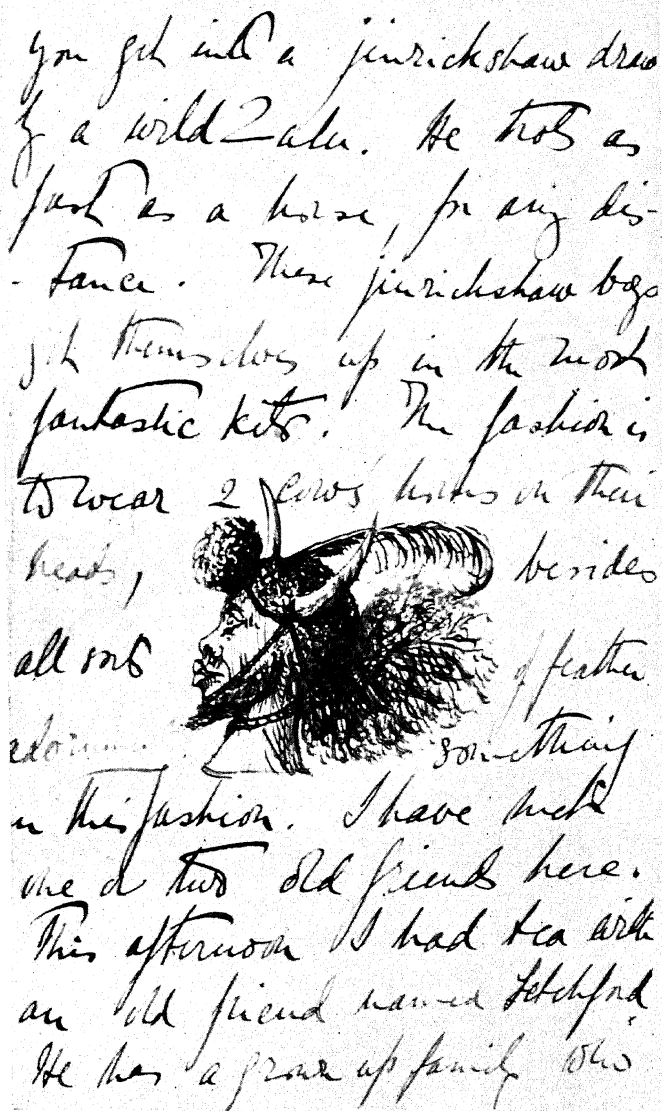 you get into a jinrickshaw draw
by a wild Zulu. He trots as
fast as a horse, for any dis-
- tance. These jinrickshaw boys
get themselves up in the most
fantastic kits. The fashion is
to wear 2 cows' horns on their
heads, besides
all sorts of feather
something
in this fashion. I have met
one or two old friends here.
This afternoon I had tea with
an old friend named Letchford.
He has a grown up family who